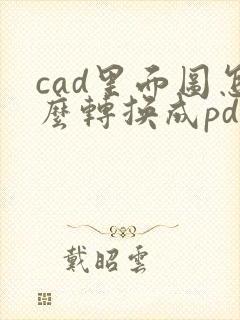 cad里面圖怎
麼轉換成pd
戴昭雲